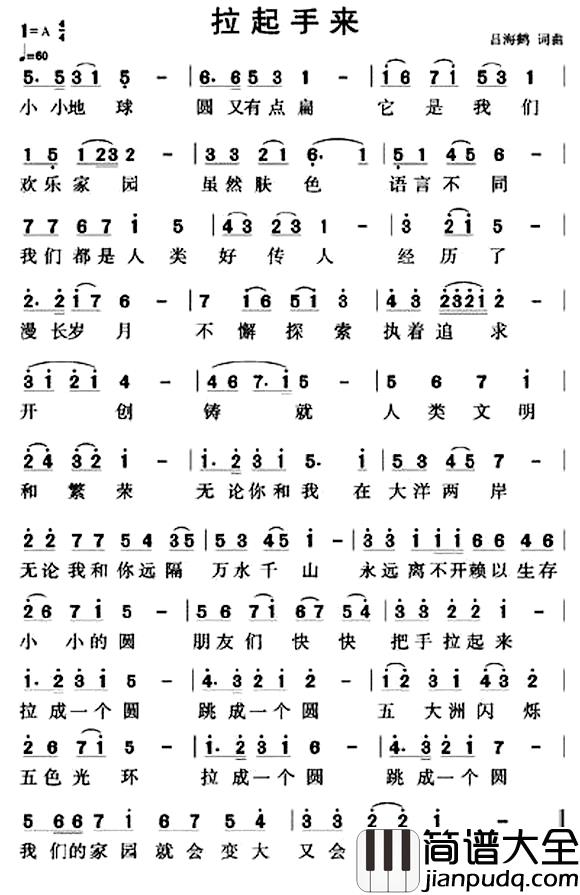 拉起手来
1=A 4/4
♩=60
吕海鹤 词曲
5. 5 3 1 5 - | 6. 6 5 3 1 - | 1 6 7 1 5 3 1 - |
小 小地 球 圆 又有点 扁 它 是 我 们
1 5 1 2 3 2 - | 3 3 2 1 6. 1 | 5 1 4 5 6 - |
欢乐家 园 虽然肤 色 语言不 同
7 7 6 7 1 5 | 4 3 2 3 1 - | 3 2 1 5 - |
我们都是人 类 好 传 人 经 历 了
2. 2 1 7 6 - | 7 1 6 5 1 3 | 4 3 2 3 2 1 2 - |
漫 长岁 月 不 懈 探 索 执着 追 求
3 1 2 1 4 - | 4 6 7. 1 5 - | 5 6 7 1 |
开 创 铸 就 人 类 文 明
2 4 3 2 1 - | 1. 2 3 1 5. 1 | 5 3 4 5 7 - |
和 繁 荣 无 论你和我 在 大洋 两 岸
2 2 7 7 5 4 3 5 | 5 3 4 5 1 - | 3 3 1 1 1 6 6 4 5 |
无论我和你远隔 万水千 山 永远离不开赖以生存
2 6 7 1 5 - | 5 6 7 1 6 7 5 4 | 3 3 2 2 1 - |
小 小的 圆 朋友们 快 快 把手拉起来
1. 2 3 1 5 - | 4. 3 2 1 2 - | 1 2 3 1 4 5 |
拉 成一个 圆 跳 成一个 圆 五 大洲闪 烁
2 6 7 1 5 - | 1. 2 3 1 5 - | 4. 3 2 1 - |
五色光 环 拉 成一个 圆 跳 成一个 圆
5 6 6 7 1 6 7 5 4 | 3 3 2 2 1 - - ‖
我 们的家园就会 变 大 又会
简谱大全
jianpudq.com